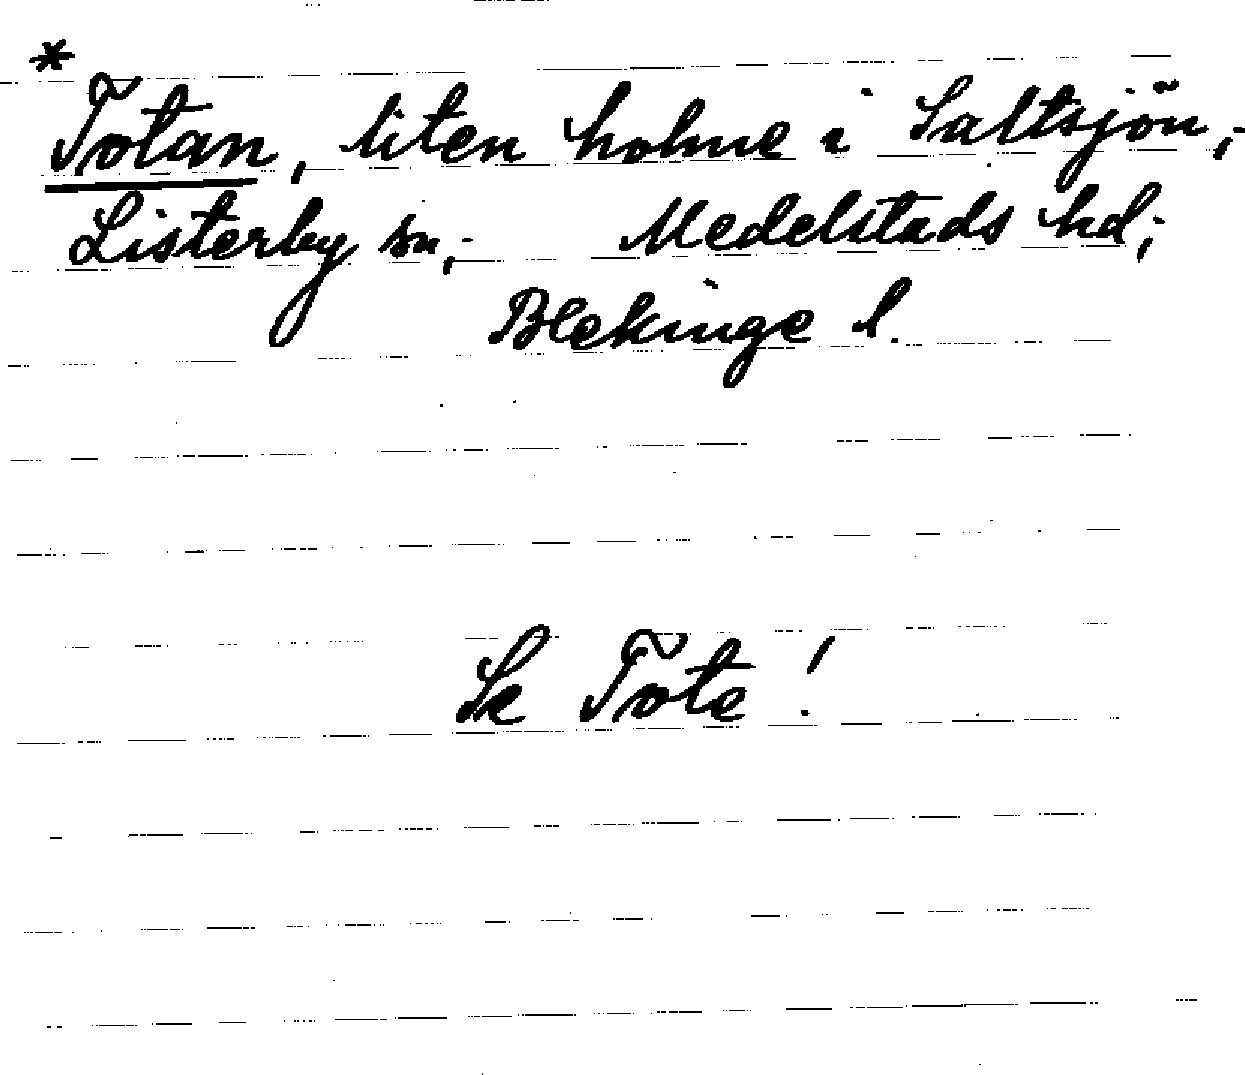 *
Totan, liten holme i Saltsjön,
Listerby sn, Medelstads hd,
Blekinge l.
Se Tote!